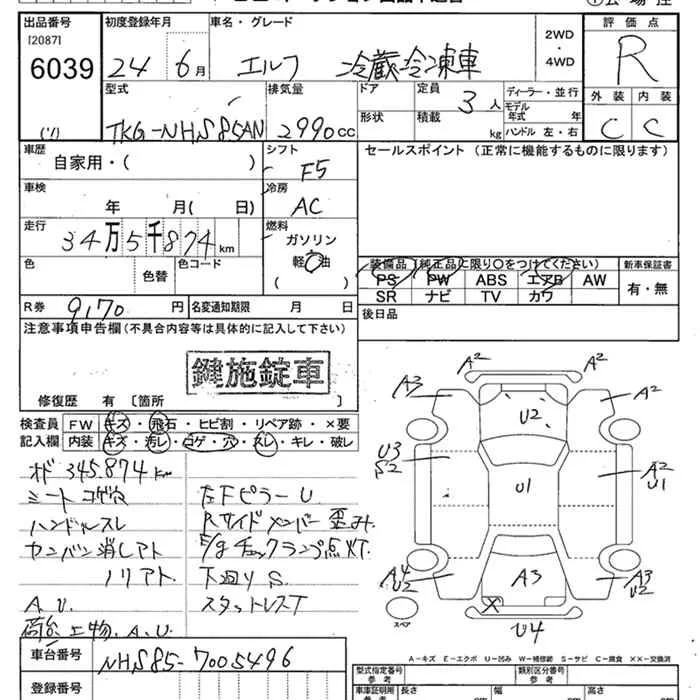 出品番号 初度登録年月 車名・グレード 2WD・4WD 評価点
[2087]
6039 24年 6月 エルフ 冷蔵冷凍車 R
型式 排気量 ドア 定員 3人 ディーラー・並行 外装 内装
TKG-NHS85AN 2990cc 形状 積載 kg モデル年式 年 ハンドル 左・右 C C
車歴 シフト セールスポイント (正常に機能するものに限ります)
自家用・( ) F5
車検 冷房
年 月( 日) AC
走行 燃料
34万5千874km ガソリン
軽 油
( )
色 色替 色コード
装備品 (純正品に限り○をつけてください) 新車保証書
PS PW ABS エアB AW 有・無
SR ナビ TV カワ
R券 9170円 名変通知期限 月 日 後日品
注意事項申告欄(不具合内容等は具体的に記入して下さい)
鍵施錠車
修復歴 有 [箇所
検査員 FW キズ・飛石・ヒビ割・リペア跡・×要
記入欄 内装 キズ・汚レ・コゲ・穴・スレ・キレ・破レ
オド 345.874km
シート コゲ穴 左Fピラー U
ハンドルスレ Rサイドメンバー 歪み.
カンバン消しアト E/gチェックランプ点灯.
ノリアト. 下廻り S.
A.U. スタットレスT
荷台上物.A.U.
A2 A2
A3 A2
U2
U3
S2 U1 A2
U1
A4
U2 A3 A3
U2
X
スペア U4
A-キズ E-エクボ U-凹み W-補修跡 S-サビ C-腐食 ××-交換済
車台番号 NHS85-7005496
登録番号
型式指定番号 参考 類別区分番号 参考
車庫証明用 参考 長さ cm 幅 cm 高さ cm